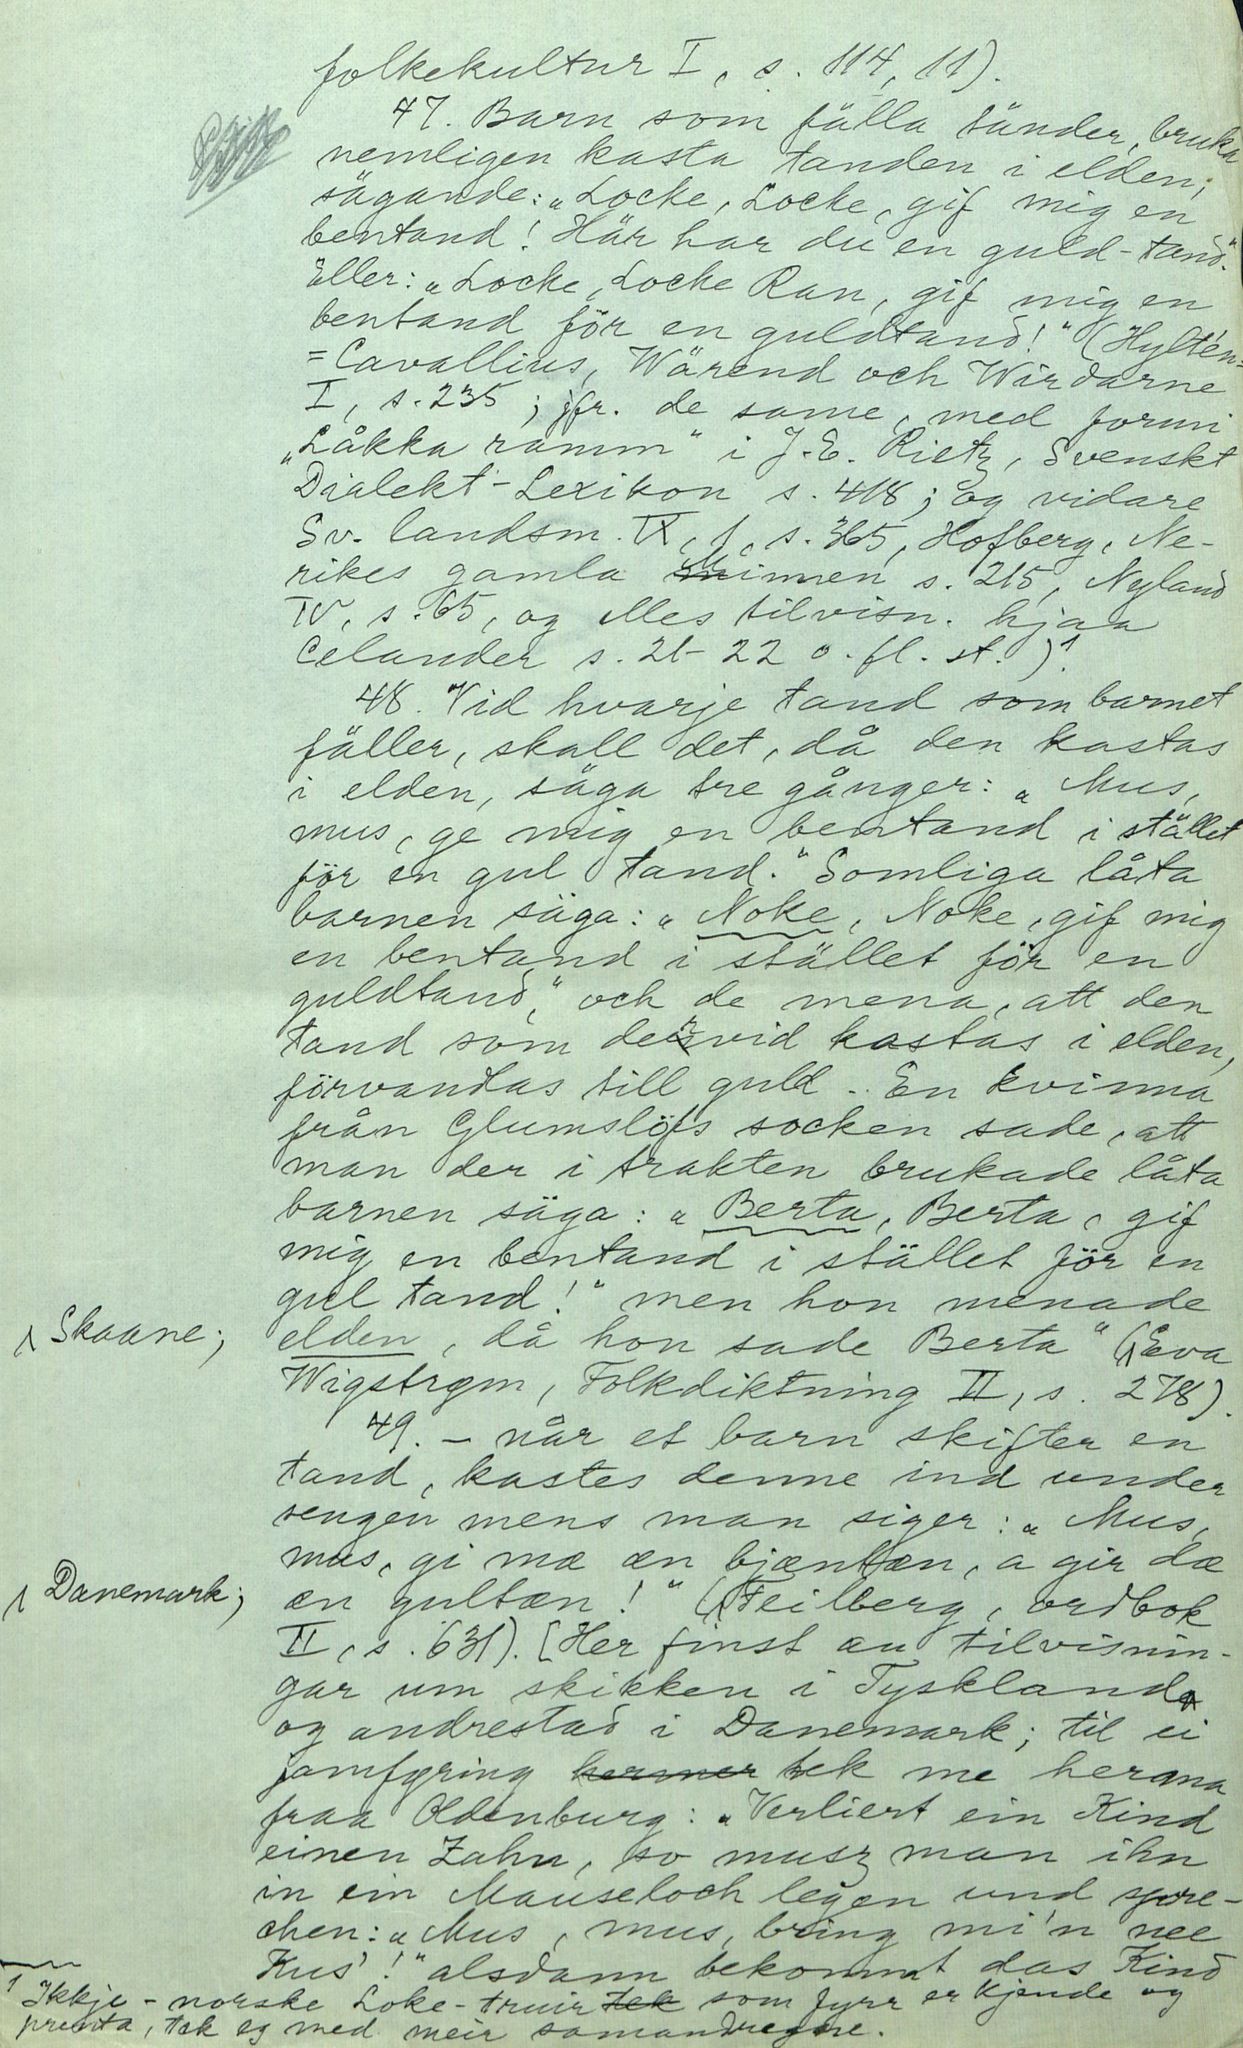 folkekultur I, s. 114, 11).
47. Barn som fälla tänder, bruka
nemligen kasta tanden i elden,
sägande: „Locke, Locke, gif mig en
bentand! Här har du en guld-tand."
Eller: „Locke, Locke Ran, gif mig en
bentand för en guldtand!" (Hyltén-
=Cavallius, Wärend och Wirdarne
I, s. 235; jfr. de same, med formi
„Låkka ramm" i J. E. Rietz, Svenskt
Dialekt-Lexikon s. 418; og vidare
Sv. landsm. IX, 1, s. 365, Hofberg, Ne-
rikes gamla Minnen s. 215, Nyland
IV, s. 65, og elles tilvisn. hjaa
Celander s. 21-22 o. fl. st.)¹.
48. Vid hvarje tand som barnet
fäller, skall det, då den kastas
i elden, säga tre gånger: „Mus,
mus, ge mig en bentand i stället
för en gul tand." Somliga låta
barnen säga: „Noke, Noke, gif mig
en bentand i stället för en
guldtand," och de mena, att den
tand som dervid kastas i elden,
förvandlas till guld. En kvinna
från Glumslöfs socken sade, att
man der i trakten brukade låta
barnen säga: „Berta, Berta, gif
mig en bentand i stället för en
gul tand!" men hon menade
Skaane;
elden, då hon sade Berta" (Eva
Wigstrøm, Folkdiktning II, s. 278).
49. - når et barn skifter en
tand, kastes denne ind under
sengen mens man siger: „Mus,
mus, gi mæ æn bjæntæn, a gir dæ
Danemark;
æn gultæn!" (Feilberg, ordbok
II, s. 631). [Her finst au tilvisnin-
gar um skikken i Tyskland
og andrestad i Danemark; til ei
jamføring hermer tek me herana
fraa Oldenburg: „Verliert ein Kind
einen Zahn, so musz man ihn
in ein Mauseloch legen und spre-
chen: „Mus, mus, bring mi'n nee
Kus'!" alsdann bekommt das Kind
¹ Ikkje-norske Loke-truir tek som fyrr er kjende og
prenta, tek eg med meir samandregne.